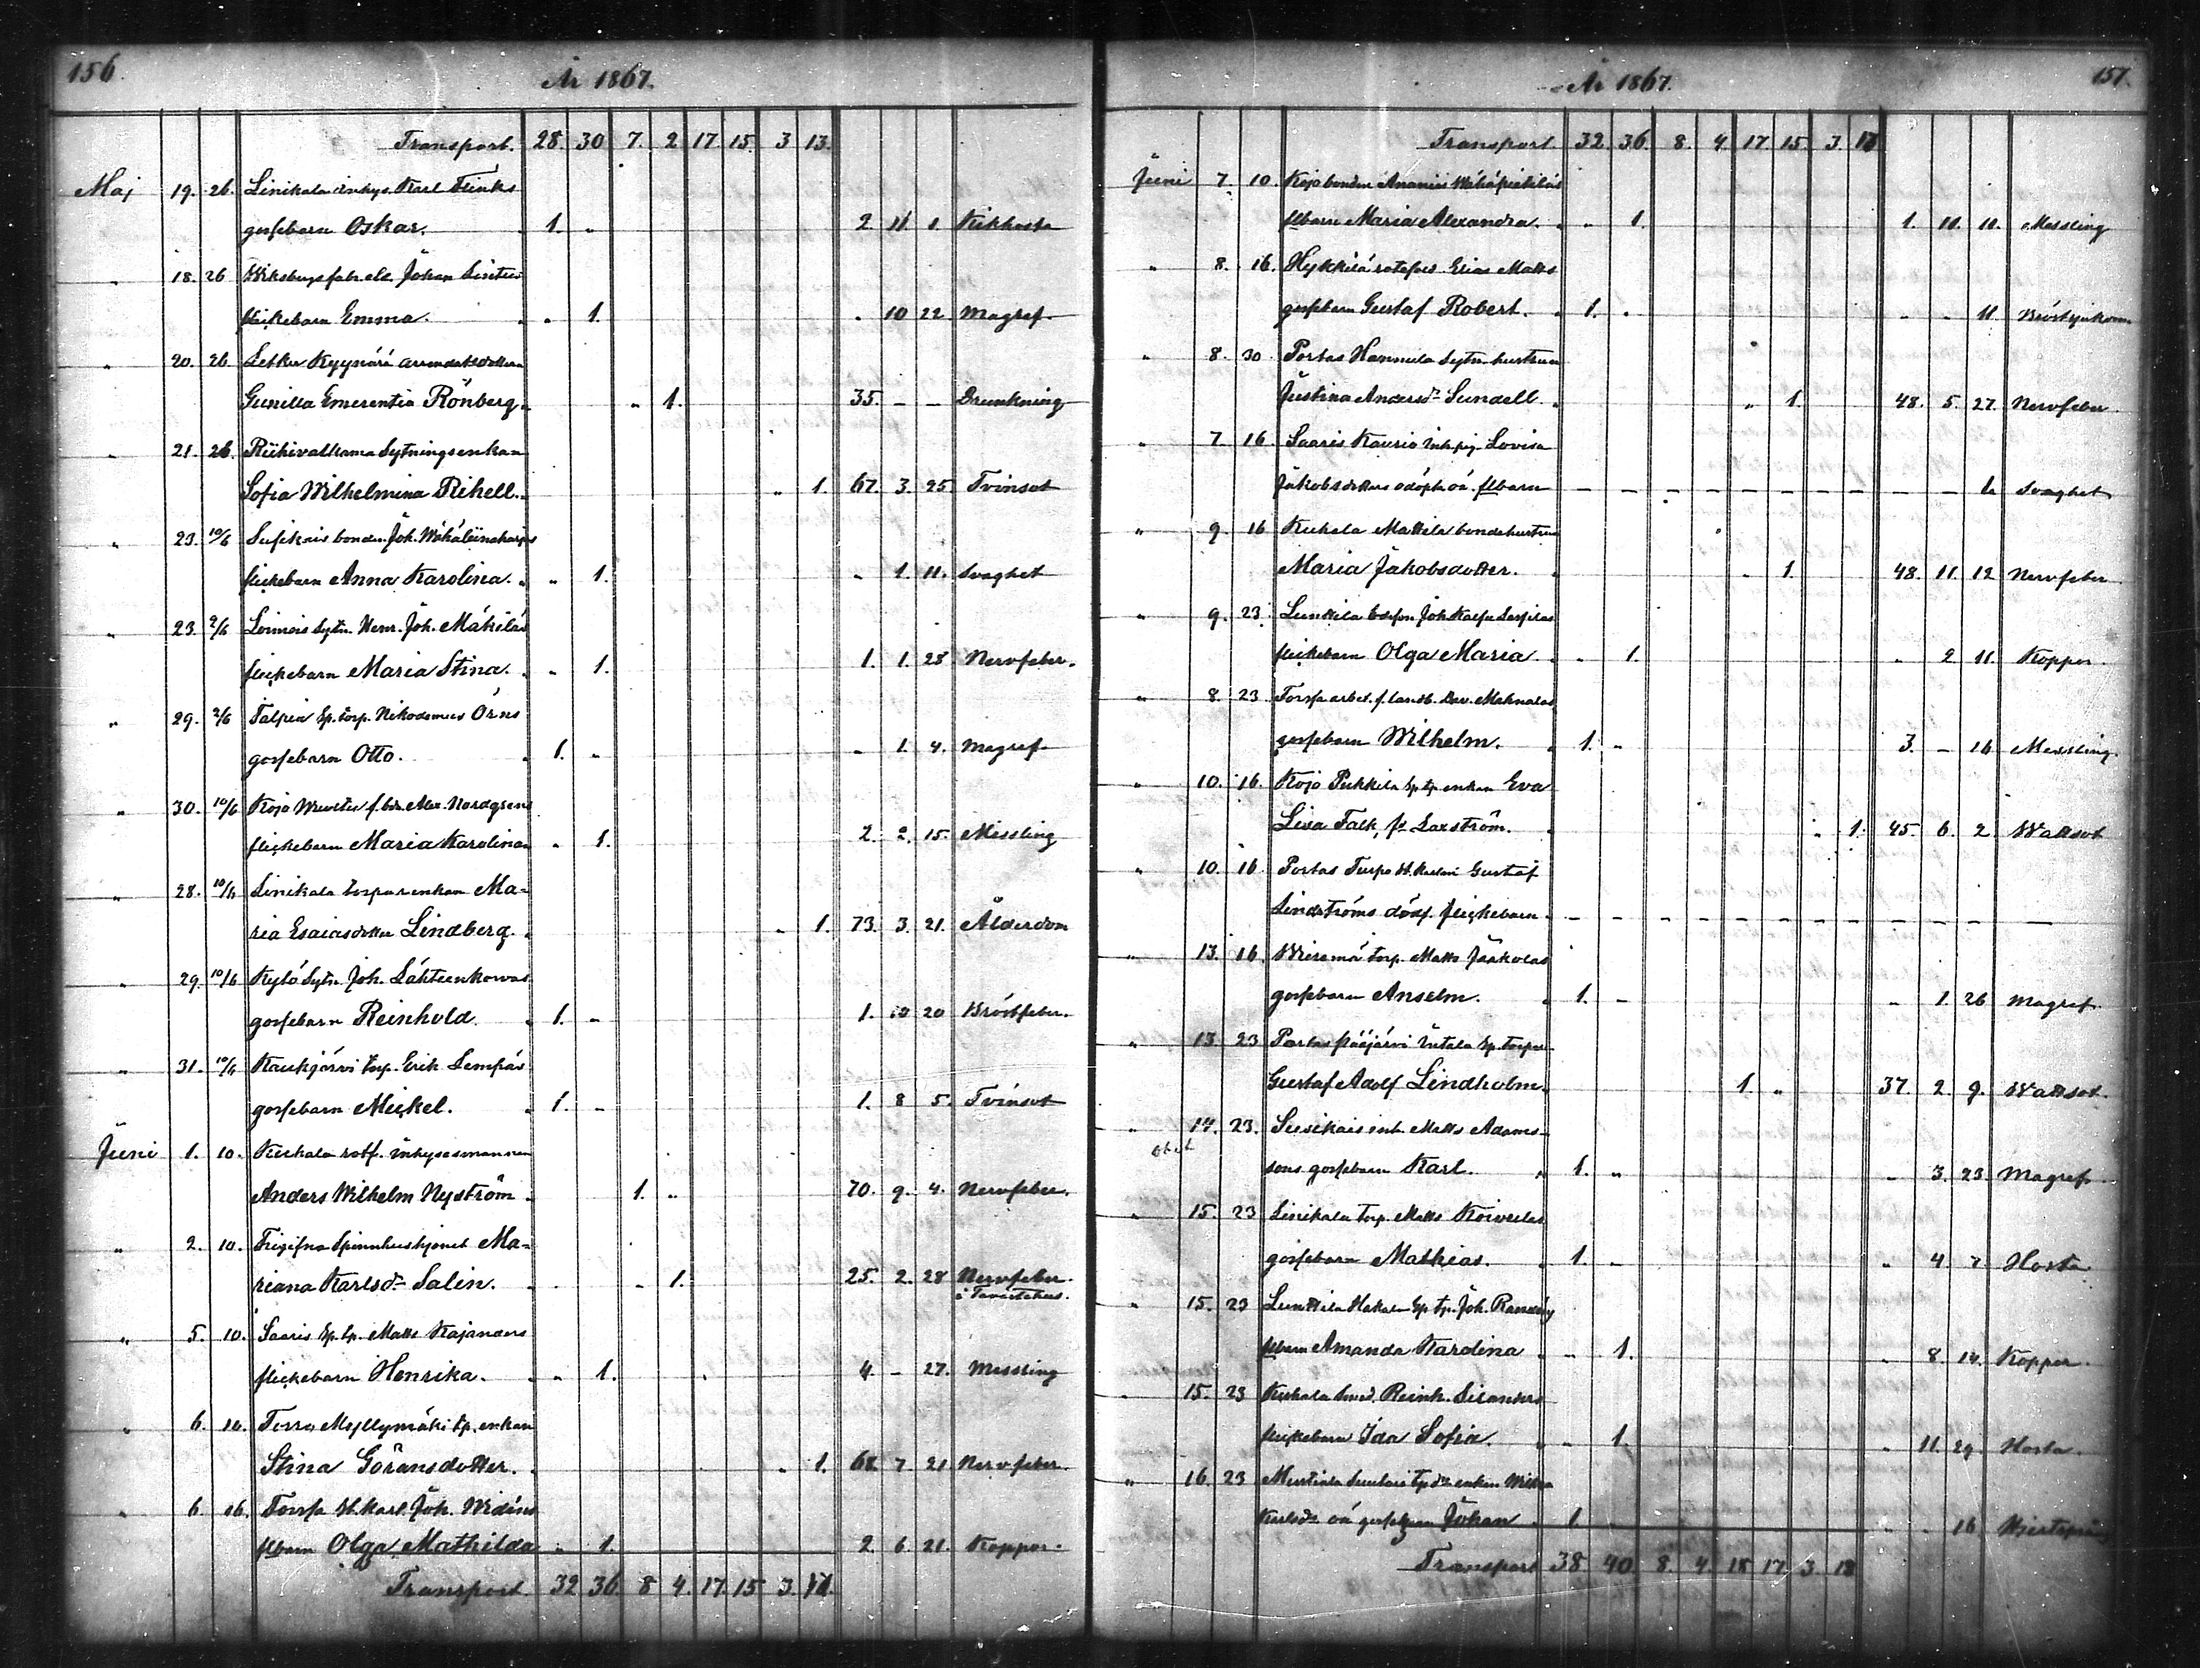 156.
År 1867.
Transport. 28. 30 7. 2 17. 15. 3 13.
Maj 19. 26. Linikala inhys. Karl Flinks
gossebarn Oskar. 1. 2 11 1. Kikhosta
" 18. 26 Johan
flickebarn Emma. 1. 10 22 Magref.
" 20. 26. Letku Kyynärä
Gunilla Emerentia Rönberg. 1. 35. — — Drunkning
" 21. 26. Riihivalkama Sytningsenkan
Sofia Wilhelmina Rihell. 1. 67. 3. 25 Tvinsot
" 23. 10/6 Susikais bonden Joh.
flickebarn Anna Karolina. 1. 1. 11. Svaghet
" 23. 2/6 Loimois Sytn. Joh. Mäkiläs
flickebarn Maria Stina. 1. 1. 1. 23. Nervfeber.
" 29. 2/6 Talpia Sp. torp. Nikodemus Örns
gossebarn Otto. 1. 1. 4. Magref.
" 30. 10/6 Kojo Alex. Nordgrens
flickebarn Maria Karolina 1. 2. 2. 15. Missling
" 28. 10/6 Linikala torpareenkan Ma-
ria Esaiasdotter Lindberg. 1. 73. 3. 21. Ålderdom
" 29. 10/6 Kylö Sytn. Joh. Lähteenkorvas
gossebarn Reinhold. 1. 1. 10 20 Bröstfeber.
" 31. 10/6 Kaukjärvi torp. Erik Lempäs
gossebarn Mickel. 1. 1. 8 5. Tvinsot
Juni 1. 10. Kuhala rotf. inhysesmannen
Anders Wilhelm Nyström 1. 70. 9. 4. Nervfeber.
" 2. 10. Spinnhushjonet Ma-
riana Karlsd:r Salin. 1. 25. 2. 28 Nervfeber.
i Tavastehus.
" 5. 10. Saaris Sp. tp. Matts Kajanders
flickebarn Henrika. 1. 4 — 27. Messling
" 6. 16. Torro Myllymäki tp. enkan
Stina Göransdotter. 1. 68. 7. 21 Nervfeber.
" 6. 16. Forssa St. karl Joh. Widéns
flbarn Olga Mathilda 1. 2. 6. 21. Koppor.
Transport 32 36. 8 4. 17. 15 3.
157.
År 1867.
Transport 32. 36. 8. 4 17. 15. 3.
Juni 7. 10. Kojo bonden Ananias
flbarn Maria Alexandra. 1. 1. 11. 11. Messling
" 8. 16. Hykkilä Elias Matts
gossebarn Gustaf Robert. 1. — — 11
" 8. 30. Portas Hannula Sytn. hustrun
Justina Andersd:r Sundell. 1. 48. 5. 27. Nervfeber.
" 7. 16. Saaris Kauria Inh. pig. Lovisa
Jakobsdotters odöpta oä. flbarn — — Svaghet
" 9. 16 Kuhala Mattila bondehustrun
Maria Jakobsdotter. 1. 48. 11. 12 Nervfeber
" 9. 23.
flickebarn Olga Maria. 1. 2 11. Koppor.
" 8. 23
gossebarn Wilhelm. 1. 3. — 16 Messling.
" 10. 16. Kojo Pukkila Sp. tp. enkan Eva
Lisa Falk, f. Laxström. 1. 45. 6. 2 Wattsot
" 10. 16 Portas Turpo Gustaf
Lindströms dödf. flickebarn. — —
" 13. 16 torp. Matts Jaakolas
gossebarn Anselm. 1. 1. 26 Magref.
" 13. 23 Portas Pääjärvi Sp. torp.
Gustaf Adolf Lindholm. 1. 37. 2 9. Wattsot.
" 14. 23. Susikais inh. Matts Adams-
sons gossebarn Karl. 1. 3. 23 Magref.
" 15. 23 Linikala torp. Matts Koivulas
gossebarn Mathias. 1. 4 7 Hosta
" 15. 23 Sp. tp. Joh.
flbarn Amanda Karolina 1. 8. 14. Koppor.
" 15. 23 Kuhala Smed. Reinh. Silanders
flickebarn Ida Sofia. 1. 11. 29 Hosta.
" 16. 23 Mustiala enkan
Karlsd:r oä gossebarn Johan 1. 16
Transport 38. 40. 8. 4. 18 17. 3. 13